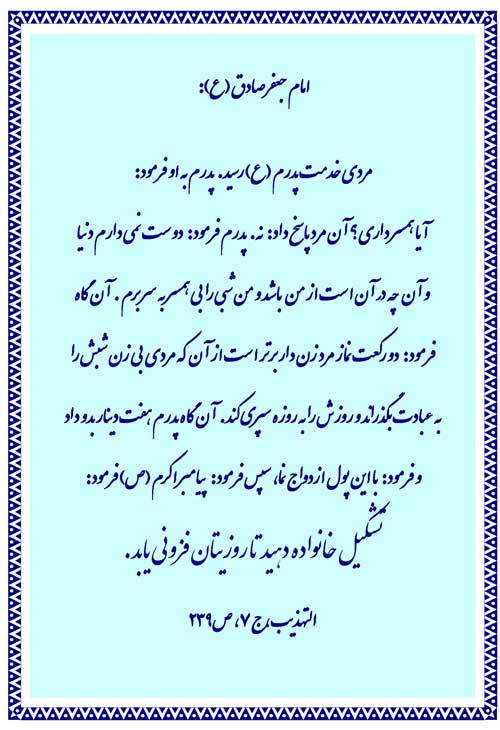 امام جعفر صادق (ع):
مردی خدمت پدرم (ع) رسید. پدرم به او فرمود:
آیا همسر داری؟ آن مرد پاسخ داد: نه. پدرم فرمود: دوست نمی دارم دنیا
و آن چه در آن است از من باشد و من شبی را بی همسر به سر برم. آن گاه
فرمود: دو رکعت نماز مرد زن دار برتر است از آن که مردی بی زن شبش را
به عبادت بگذراند و روزش را به روزه سپری کند. آن گاه پدرم هفت دینار بدو داد
و فرمود: با این پول ازدواج نما، سپس فرمود: پیامبر اکرم (ص) فرمود:
تشکیل خانواده دهید تا روزیتان فزونی یابد.
التهذیب، ج ۷، ص ۲۳۹